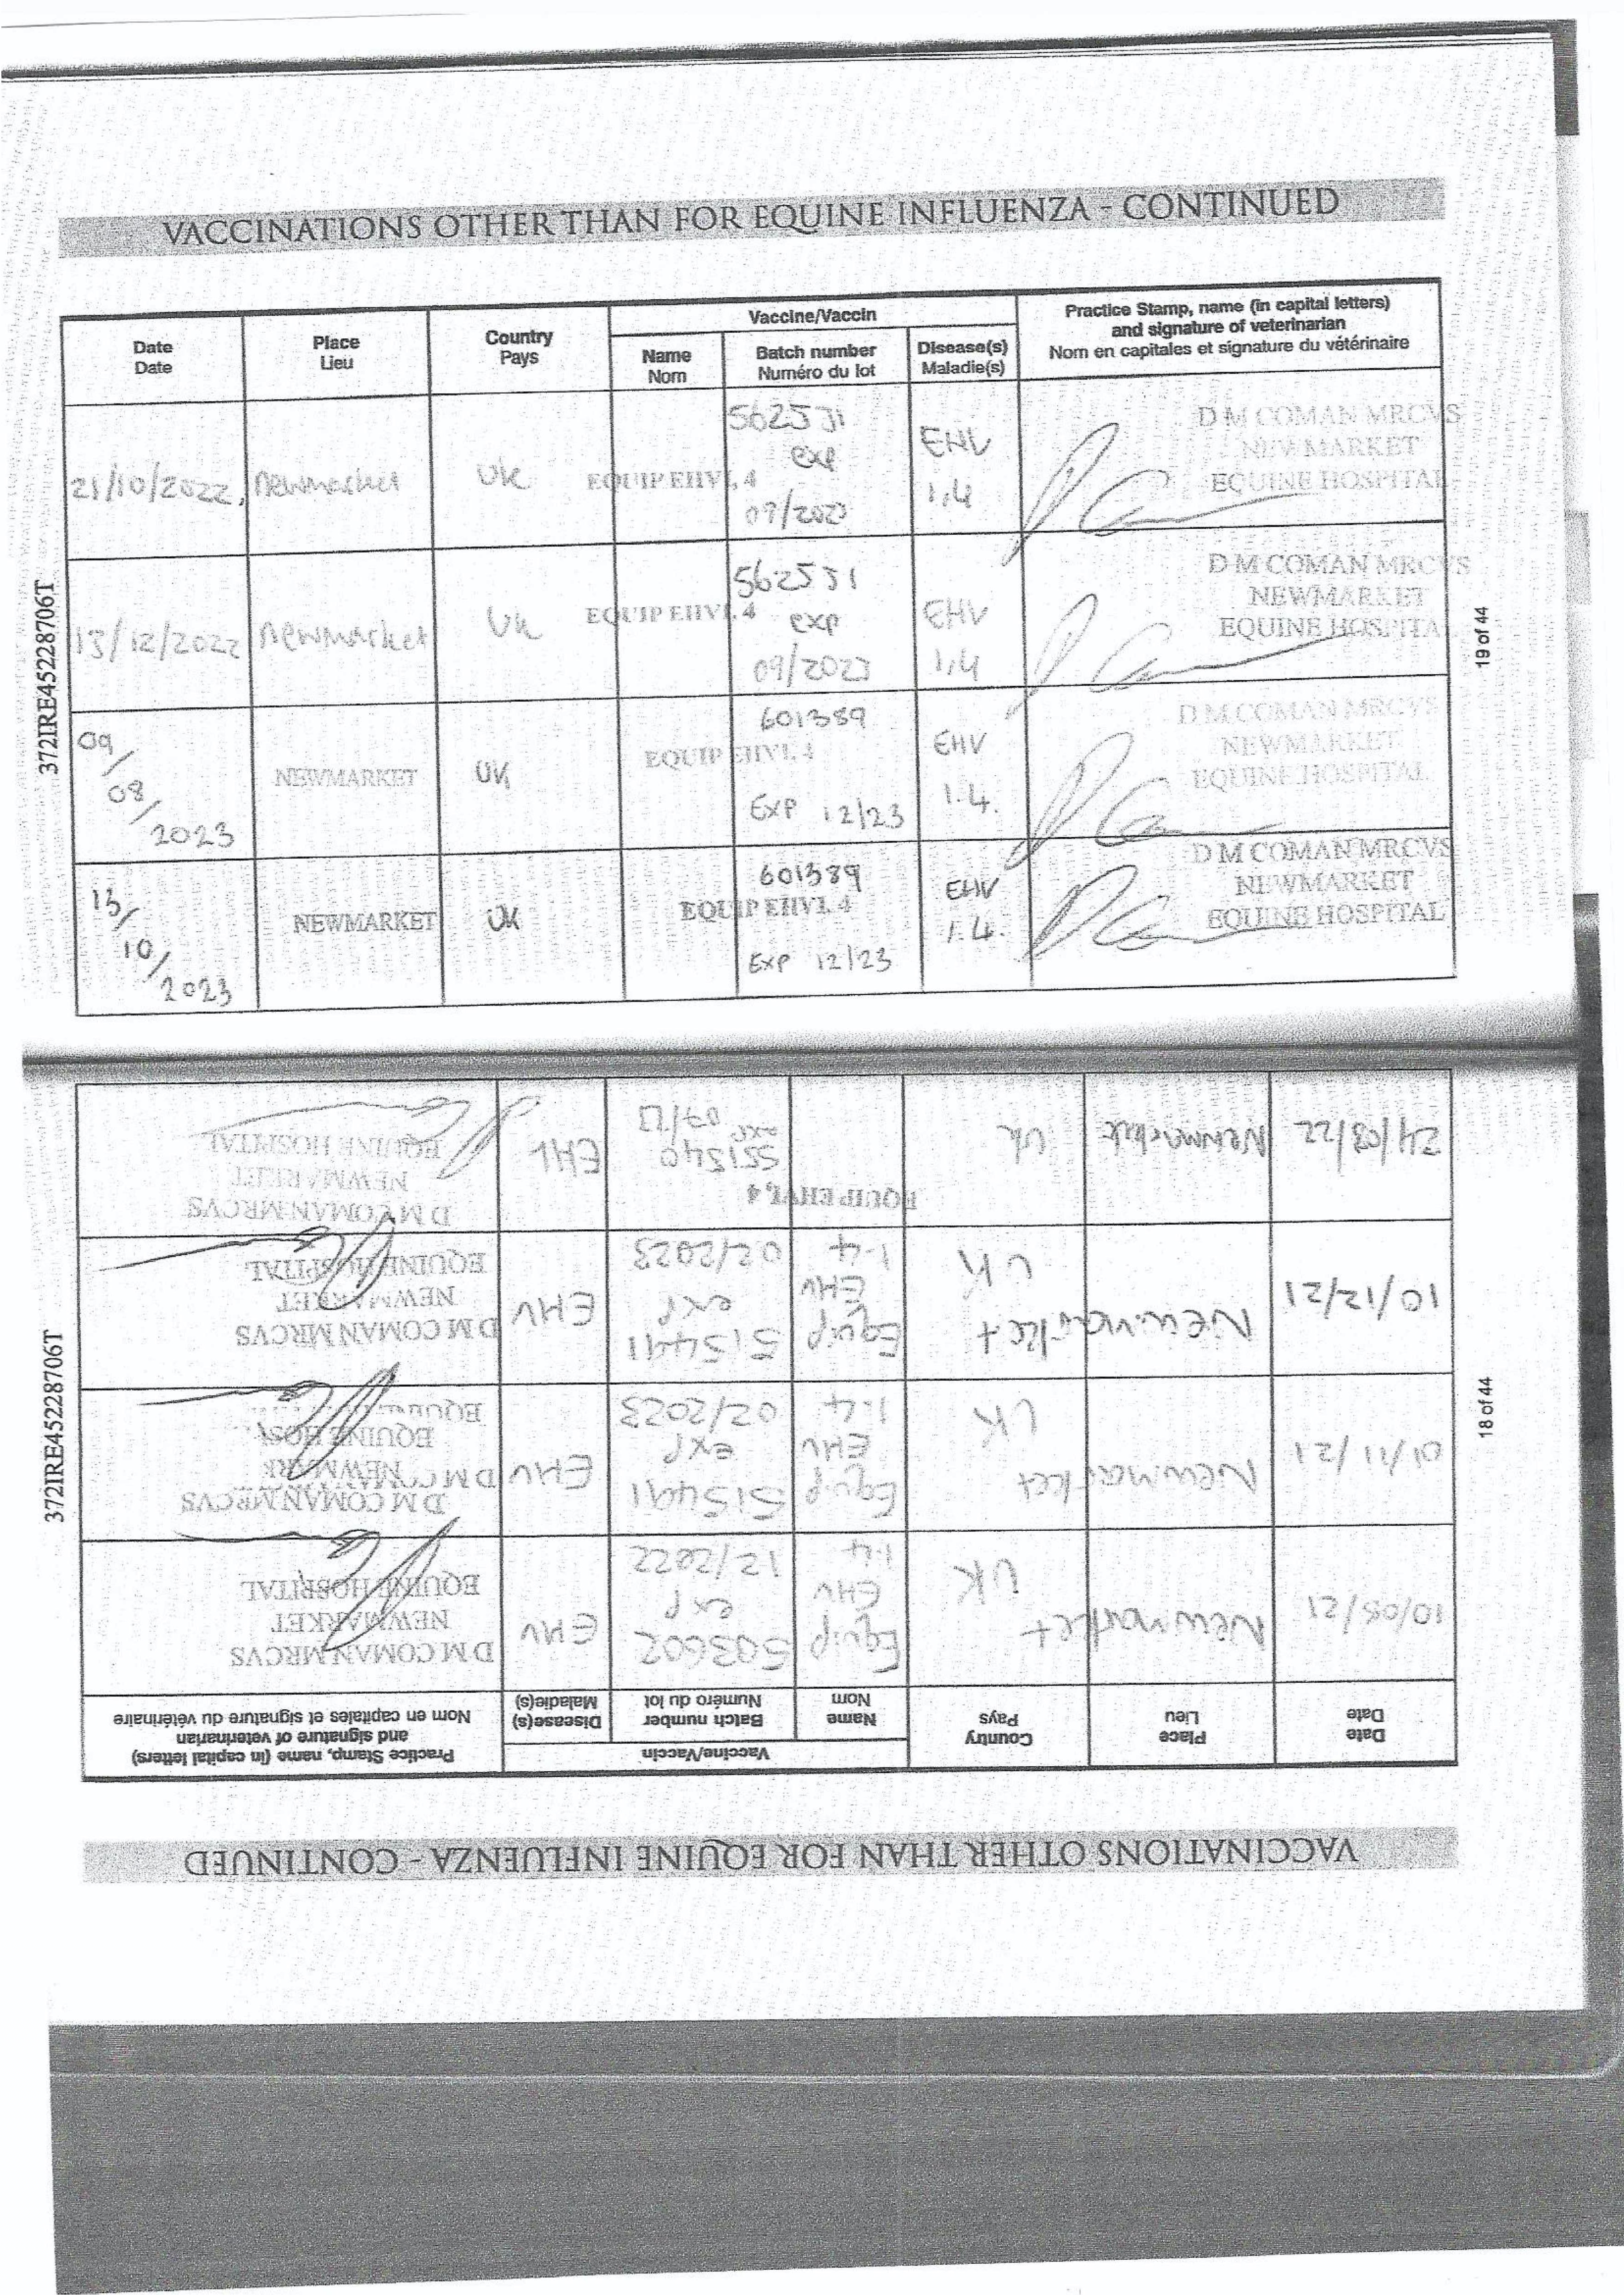 VACCINATIONS OTHER THAN FOR EQUINE INFLUENZA - CONTINUED
Date
Date
Place
Lieu
Country
Pays
Vaccine/Vaccin
Name
Nom
Batch number
Numéro du lot
Disease(s)
Maladie(s)
Practice Stamp, name (in capital letters)
and signature of veterinarian
Nom en capitales et signature du vétérinaire
21/10/2022, Newmarket UK EQUIP EHV1,4
5625J1
exp
EHV
1,4
D M COMAN MRCVS
NEWMARKET
EQUINE HOSPITAL
13/12/2022 Newmarket UK EQUIP EHV1,4
5625J1
exp
09/2023
EHV
1,4
D M COMAN MRCVS
NEWMARKET
EQUINE HOSPITA
09/
08/
2023
NEWMARKET
UK
EQUIP EHV1,4
601389
Exp 12/23
EHV
1.4.
D M COMAN MRCVS
NEWMARKET
EQUINE HOSPITAL
13/
10/
2023
NEWMARKET
UK
EQUIP EHV1,4
601389
Exp 12/23
EHV
1.4.
D M COMAN MRCVS
NEWMARKET
EQUINE HOSPITAL
372IRE45228706T
19 of 44
VACCINATIONS OTHER THAN FOR EQUINE INFLUENZA - CONTINUED
Date
Date
Place
Lieu
Country
Pays
Vaccine/Vaccin
Name
Nom
Batch number
Numéro du lot
Disease(s)
Maladie(s)
Practice Stamp, name (in capital letters)
and signature of veterinarian
Nom en capitales et signature du vétérinaire
10/08/21
Newmarket
UK
Equip
EHV
1.4
503602
exp
12/2022
EHV
D M COMAN MRCVS
NEWMARKET
EQUINE HOSPITAL
01/11/21
Newmarket
UK
Equip
EHV
1.4
515491
exp
02/2023
EHV
D M COMAN MRCVS
D M COMA
NEWMARK
EQUINE HOS
EQUINE
10/12/21
Newmarket
UK
Equip
EHV
1.4
515491
exp
02/2023
EHV
D M COMAN MRCVS
NEWMARKET
EQUINE HOSPITAL
24/03/22
Newmarket
UK
EQUIP EHV1,4
551540
exp
EHV
D M COMAN MRCVS
NEWMARKET
EQUINE HOSPITAL
372IRE45228706T
18 of 44